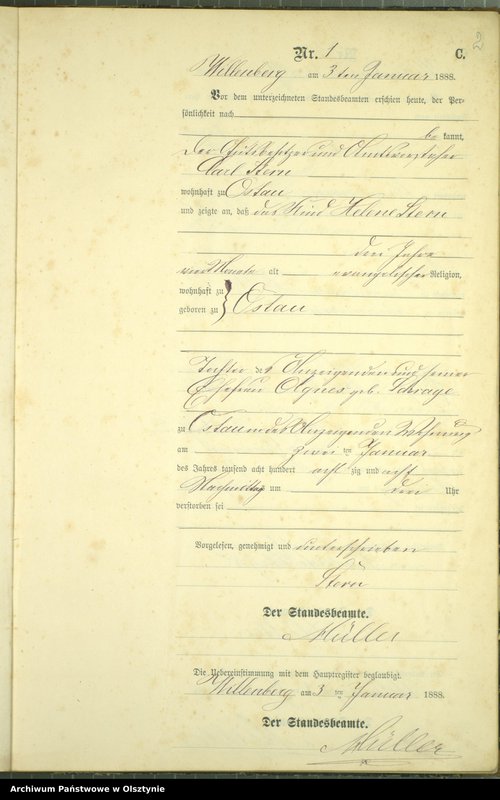 2
Nr. 1 C.
Willenberg am 3 ten Januar 1888.
Vor dem unterzeichneten Standesbeamten erschien heute, der Per-
sönlichkeit nach
be kannt,
der Gutsbesitzer und Amtsvorsteher
Carl Stern
wohnhaft zu Ostau
und zeigte an, daß das Kind Helene Stern
drei Jahre
vier Monate alt evangelischer Religion,
wohnhaft zu
geboren zu Ostau
Tochter des Anzeigenden und seiner
Ehefrau Agnes geb. Schrage
zu Ostau in des Anzeigenden Wohnung
am zwei ten Januar
des Jahres tausend acht hundert acht zig und acht
Nachmittags um drei Uhr
verstorben sei
Vorgelesen, genehmigt und unterschrieben
Stern
Der Standesbeamte.
Müller
Die Uebereinstimmung mit dem Hauptregister beglaubigt.
Willenberg am 3 ten Januar 1888.
Der Standesbeamte.
Müller
Archiwum Państwowe w Olsztynie